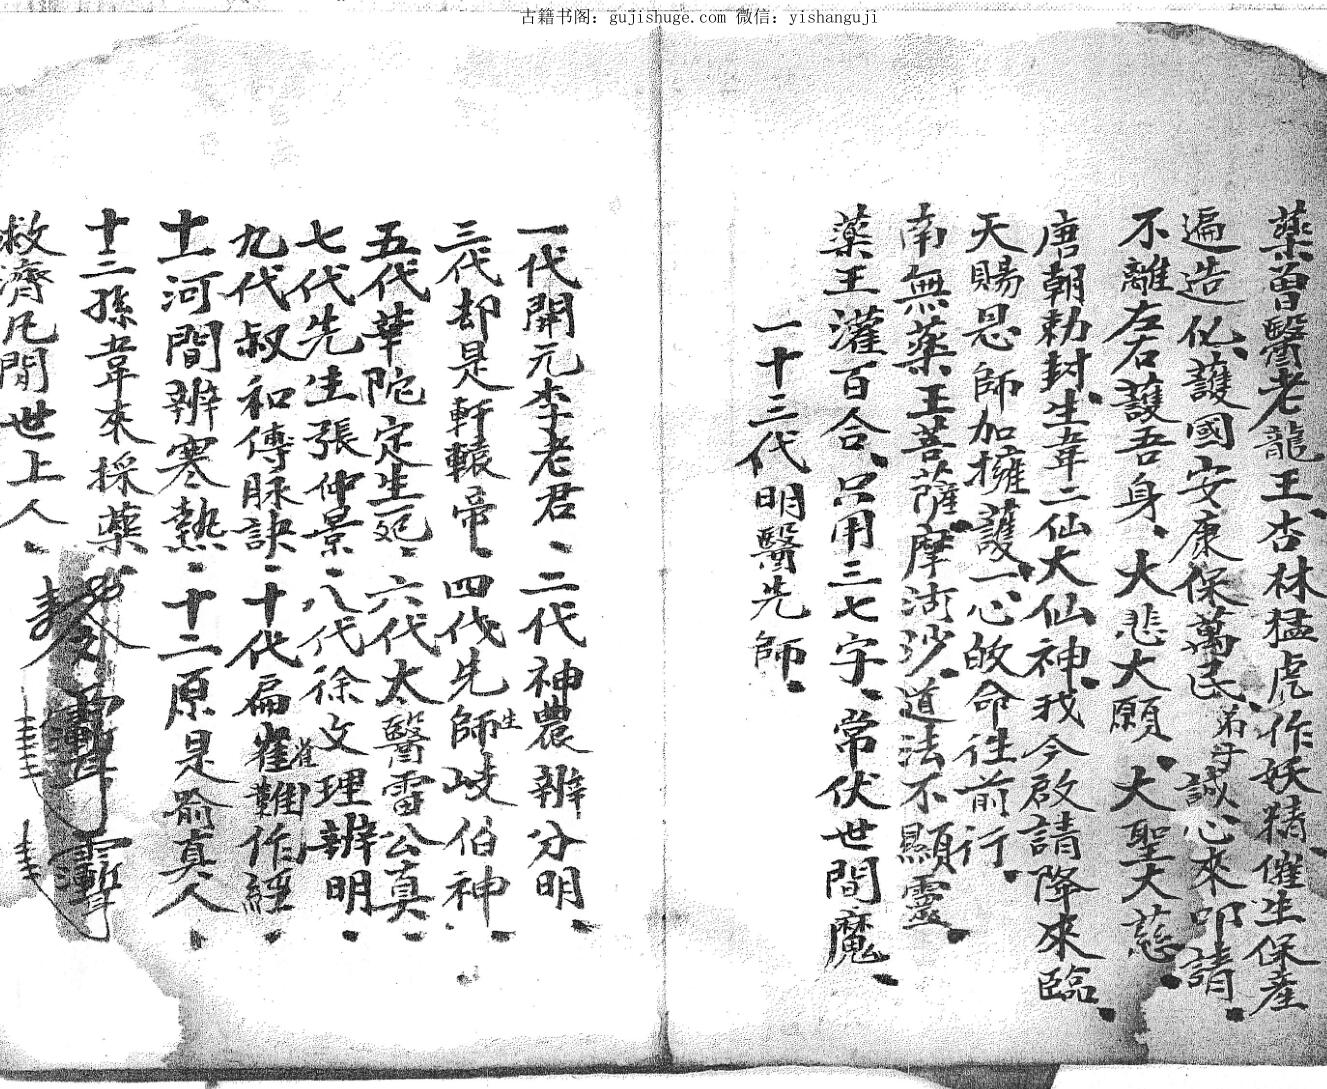 古籍书阁：gujishuge.com 微信：yishanguji
藥曾醫老龍王、杏林猛虎作妖精、催生保產
遍造化、護國安康保萬民、弟子誠心來叩請、
不離左右護吾身、大悲大願、大聖大慈、
唐朝勅封、生韋二仙大仙神、我今啟請降來臨、
天賜恩師加擁護、一心皈命往前行、
南無藥王菩薩摩訶沙、道法不顯靈、
藥王灌百合、只用三七字、常伏世間魔、
一十三代明醫先師、
一代開元李老君、二代神農辨分明、
三代却是軒轅帝、四代先師生岐伯神、
五代華陀定生死、六代太醫雷公真、
七代先生張仲景、八代徐文理辨明、
九代叔和傳脉訣、十代扁雀難作經、
十一河間辨寒熱、十二原是喻真人、
十三孫韋來採藥、
救濟凡間世上人、